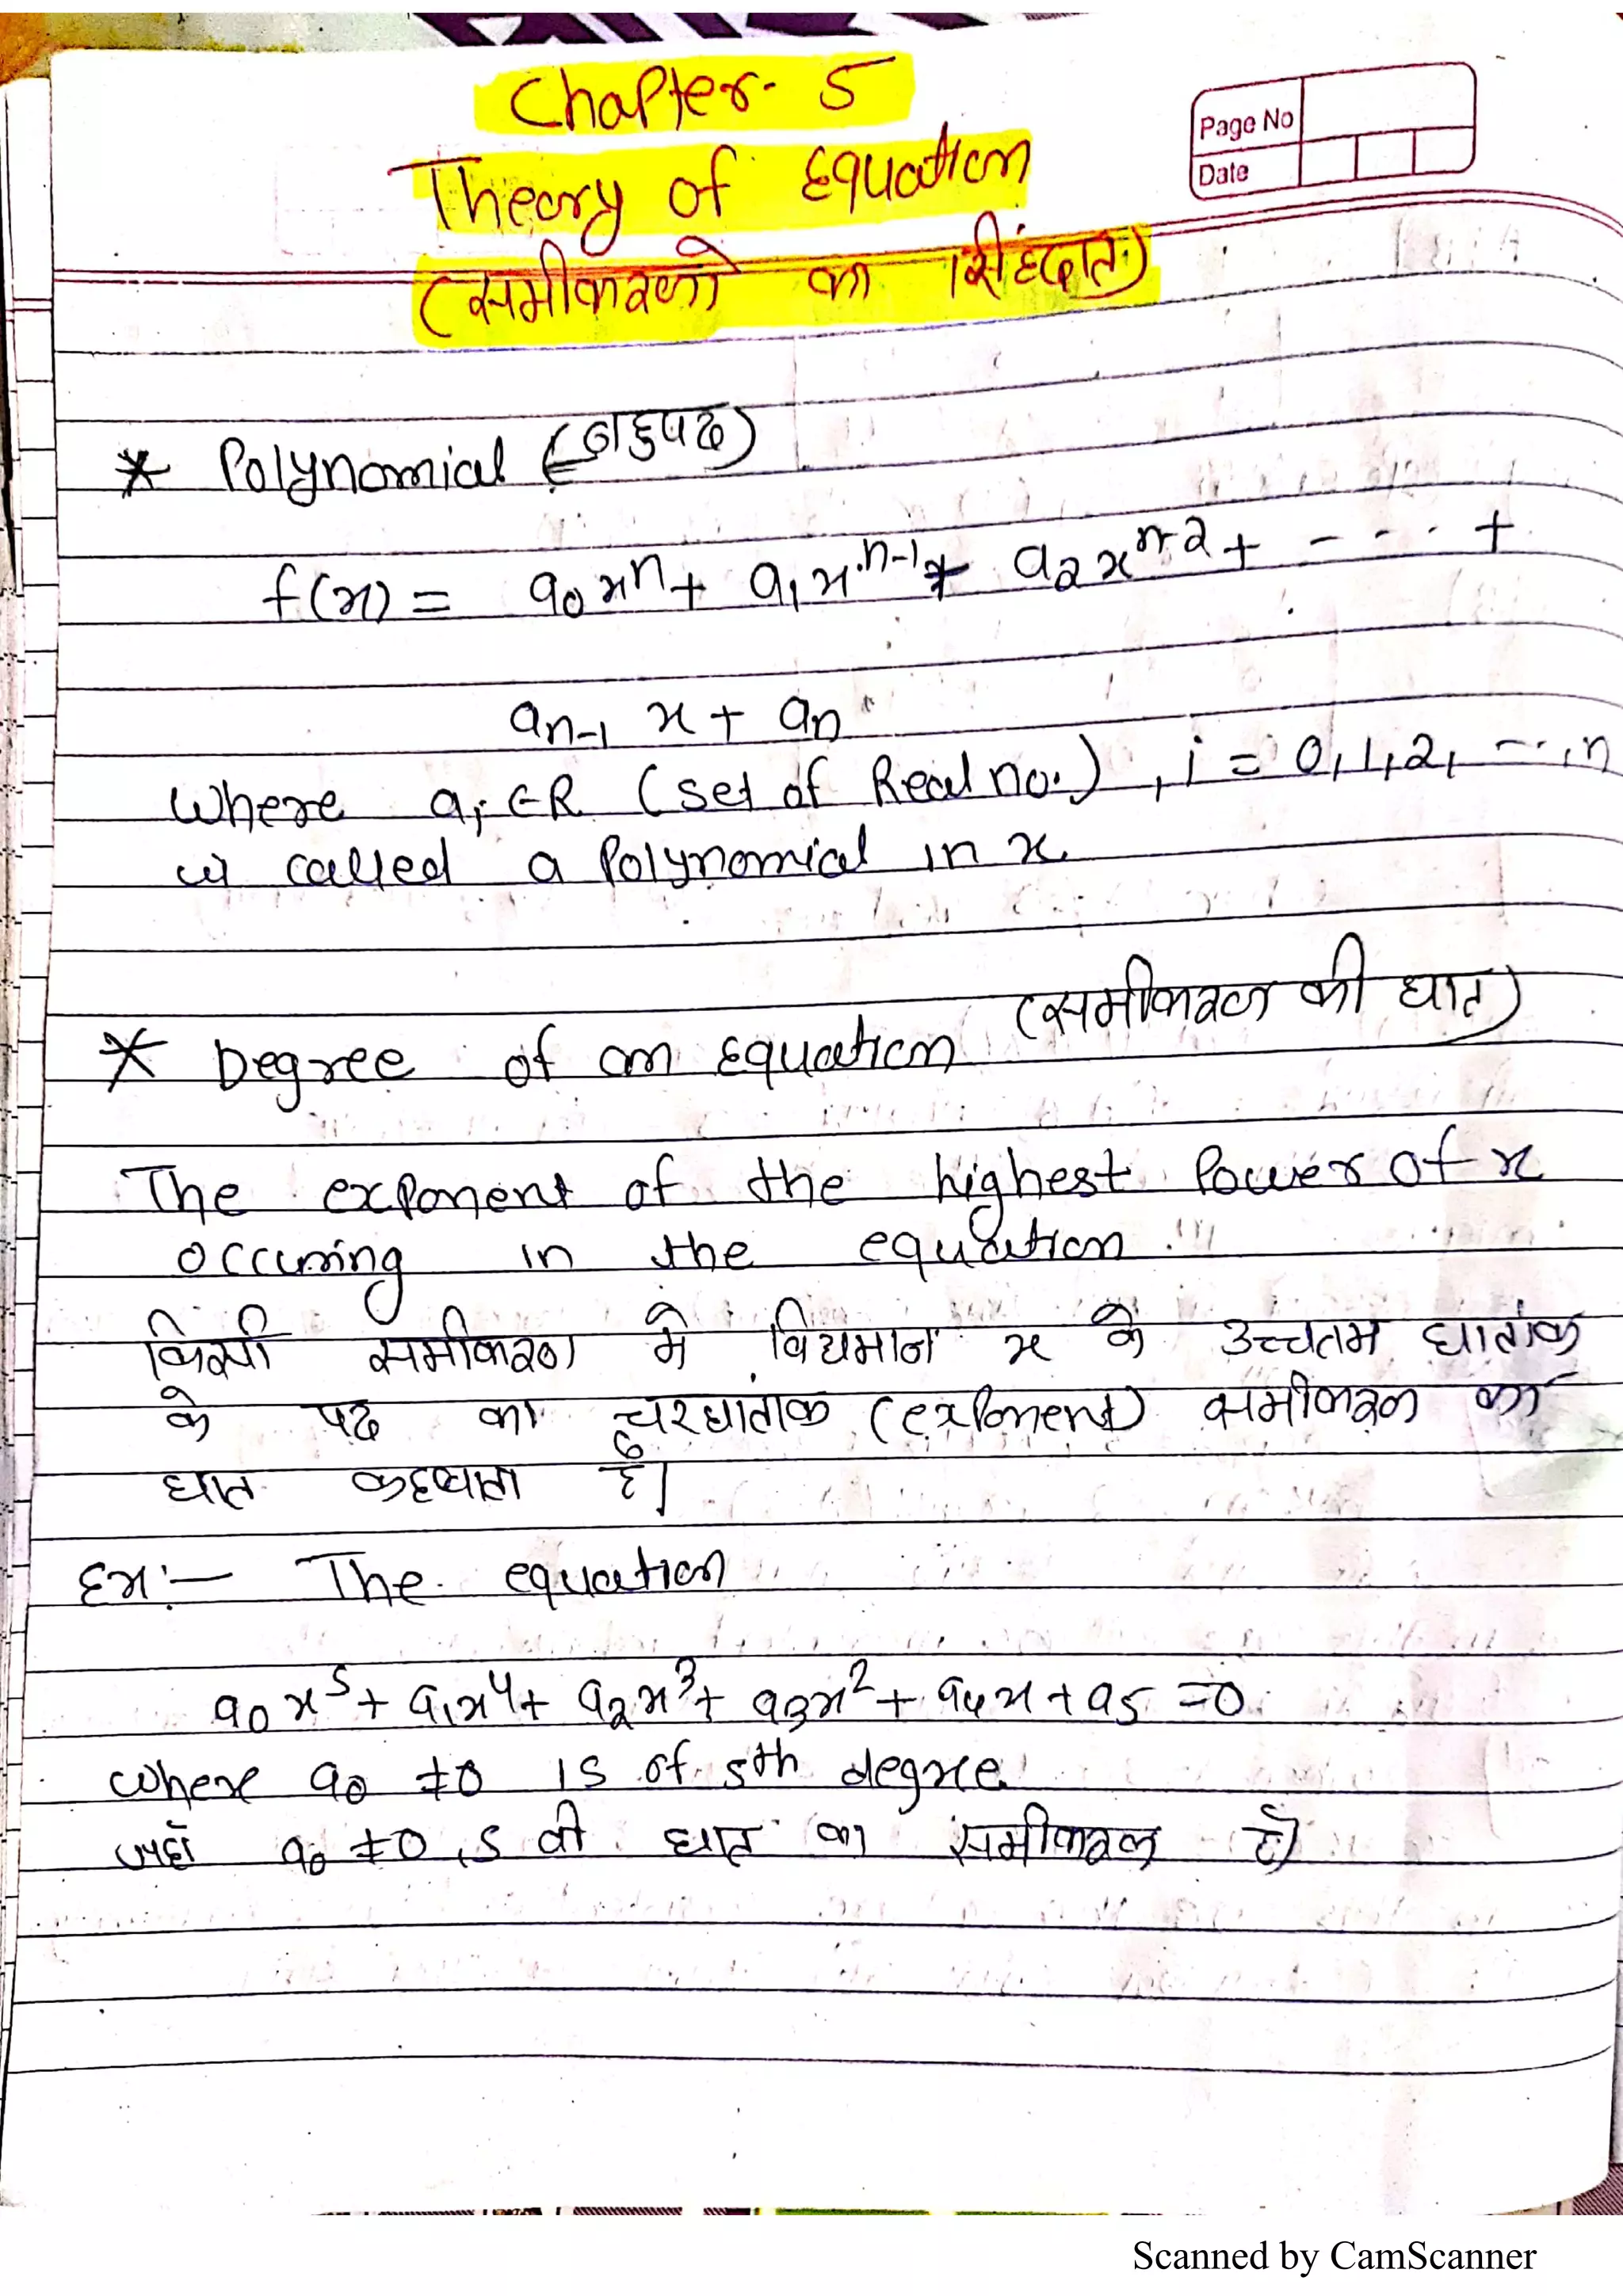 Chapter- 5
Page No
Theory of Equation
Date
(समीकरणो का सिंहदात)
* Polynomial (बहुपद)
f(x) = a₀xⁿ + a₁xⁿ⁻¹ + a₂xⁿ⁻² + - - - +
aₙ₋₁ x + aₙ
where aᵢ ∈ R (set of Real no.) , i = 0,1,2, ---,n
is called a Polynomial in x.
* Degree of an Equation (समीकरण की घात)
The exponent of the highest Power of x
occuring in the equation
किसी समीकरण मे विद्यमान x के उच्चतम घातांक
के पद का चरघातांक (exponent) समीकरण का
घात कहलाता है।
Ex:- The equation
a₀x⁵ + a₁x⁴ + a₂x³ + a₃x² + a₄x + a₅ = 0
where a₀ ≠ 0 is of 5th degree.
जहाँ a₀ ≠ 0, 5 वी घात का समीकरण है।
Scanned by CamScanner